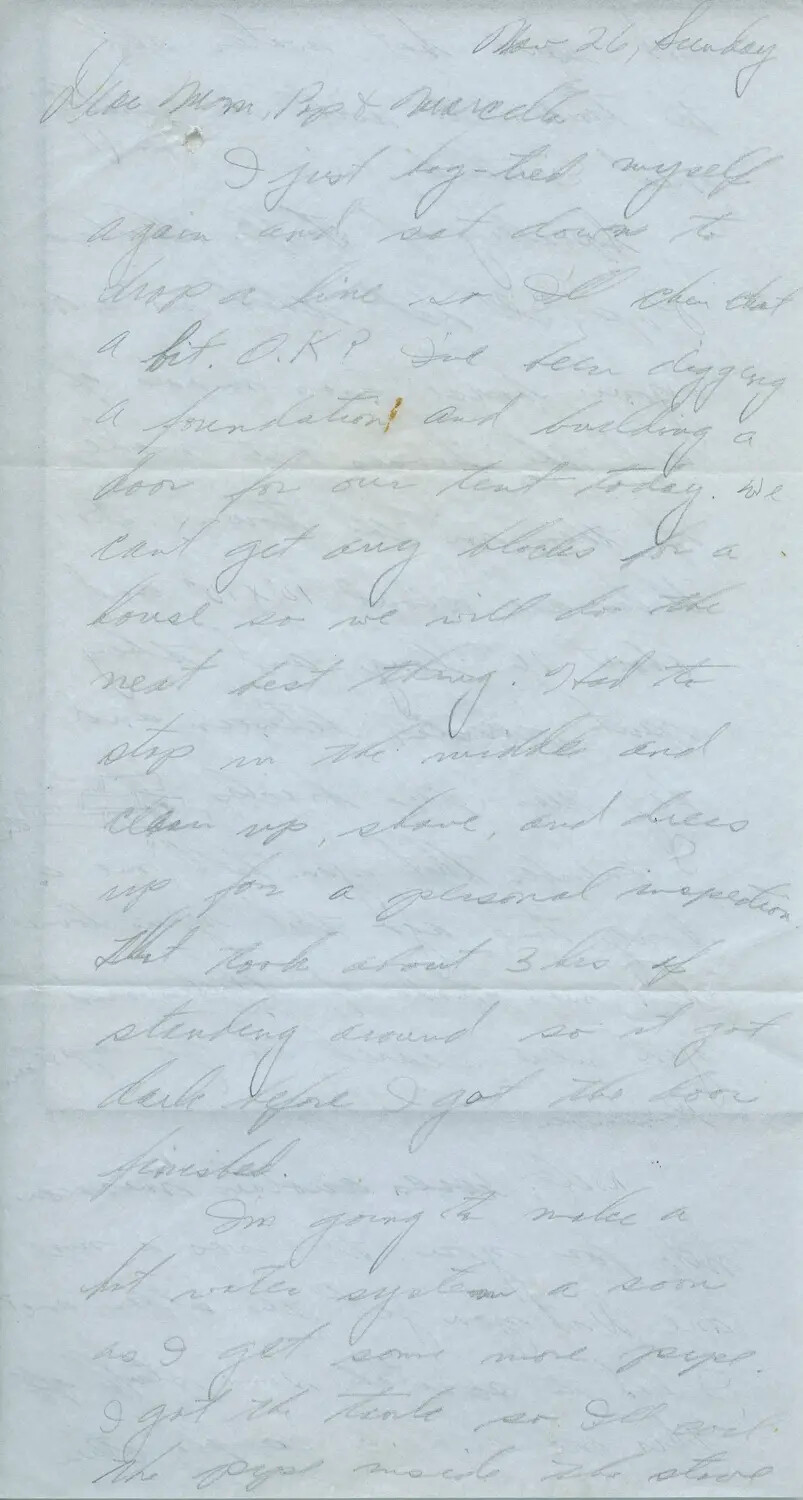 Nov 26, Sunday
Dear Mom, Pop & Marcella
I just hog-tied myself
again and sat down to
drop a line so I'll chin chat
a bit. O.K? I've been digging
a foundation and building a
door for our tent today. We
can't get any blocks for a
house so we will do the
next best thing. Had to
stop in the middle and
clean up, shave, and dress
up for a personal inspection.
That took about 3 hrs of
standing around so it got
dark before I got the door
finished.
I'm going to make a
hot water system a soon
as I get some more pipe.
I got the tank so I'll coil
the pipe inside the stove